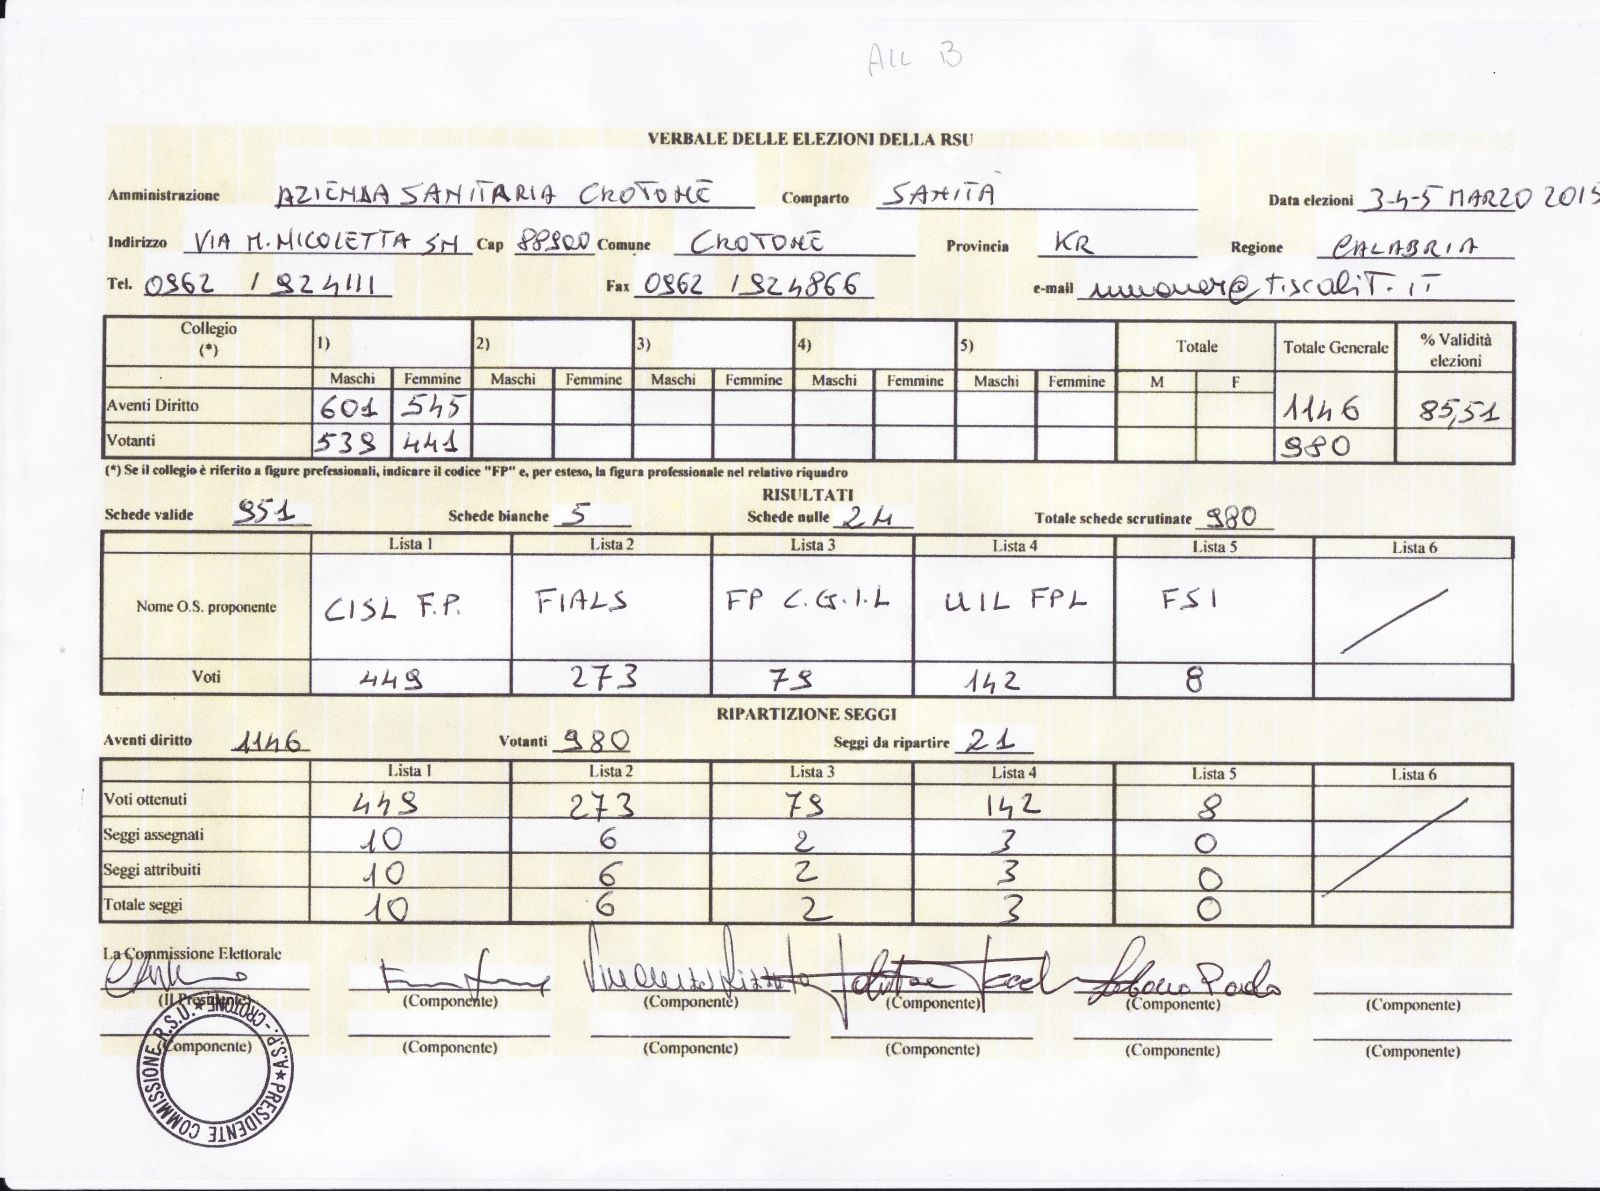 All B
VERBALE DELLE ELEZIONI DELLA RSU
Amministrazione AZIENDA SANITARIA CROTONE Comparto SANITÀ Data elezioni 3-4-5 MARZO 2015
Indirizzo VIA M. NICOLETTA SN Cap 88900 Comune CROTONE Provincia KR Regione CALABRIA
Tel. 0962 / 924111 Fax 0962 / 924866 e-mail @tiscaliT.iT
Collegio (*) 1) 2) 3) 4) 5) Totale Totale Generale % Validità elezioni
Maschi Femmine Maschi Femmine Maschi Femmine Maschi Femmine Maschi Femmine M F
Aventi Diritto 601 545 1146 85,51
Votanti 539 441 980
(*) Se il collegio è riferito a figure prefessionali, indicare il codice "FP" e, per esteso, la figura professionale nel relativo riquadro
RISULTATI
Schede valide 951 Schede bianche 5 Schede nulle 24 Totale schede scrutinate 980
Lista 1 Lista 2 Lista 3 Lista 4 Lista 5 Lista 6
Nome O.S. proponente CISL F.P. FIALS FP C.G.I.L UIL FPL FSI
Voti 449 273 79 142 8
RIPARTIZIONE SEGGI
Aventi diritto 1146 Votanti 980 Seggi da ripartire 21
Lista 1 Lista 2 Lista 3 Lista 4 Lista 5 Lista 6
Voti ottenuti 449 273 79 142 8
Seggi assegnati 10 6 2 3 0
Seggi attribuiti 10 6 2 3 0
Totale seggi 10 6 2 3 0
La Commissione Elettorale
(Il Presidente) (Componente) (Componente) (Componente) (Componente) (Componente)
(Componente) (Componente) (Componente) (Componente) (Componente) (Componente)
A.S.P. - CROTONE ★ PRESIDENTE COMMISSIONE R.S.U. ★